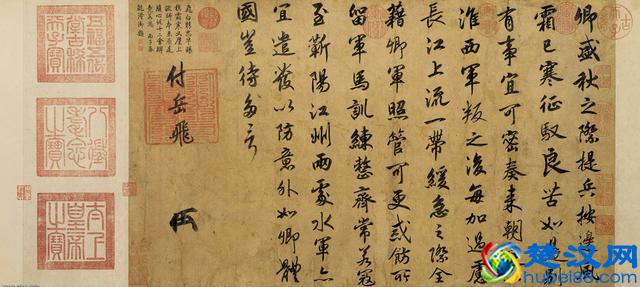 卿盛秋之際提兵按邊風
霜已寒征馭良苦如是別
有事宜可密奏来朝
淮西軍叛之後每加過慮
長江上流一帶緩急之際全
藉卿軍照管可更戒飭所
留軍馬訓練整齊常若寇
至蘄陽江州兩處水軍亦
宜遣發以防意外如卿體
國豈待多言
付岳飛
八徵耄念之寶
太上皇帝之寶
楚汉网
hubei88.com